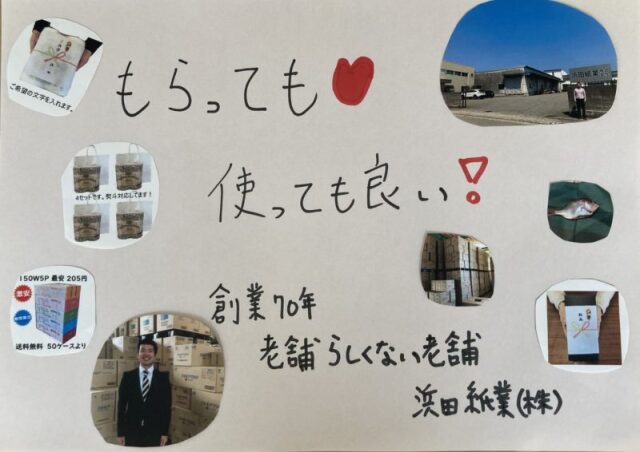 もらっても
ご希望の文字を入れます。
浜田紙業(株)
使っても良い!
4セットです。熨斗対応してます!
150W5P 最安 205円
激安
送料無料 50ケースより
創業70年
老舗らしくない老舗
浜田紙業(株)